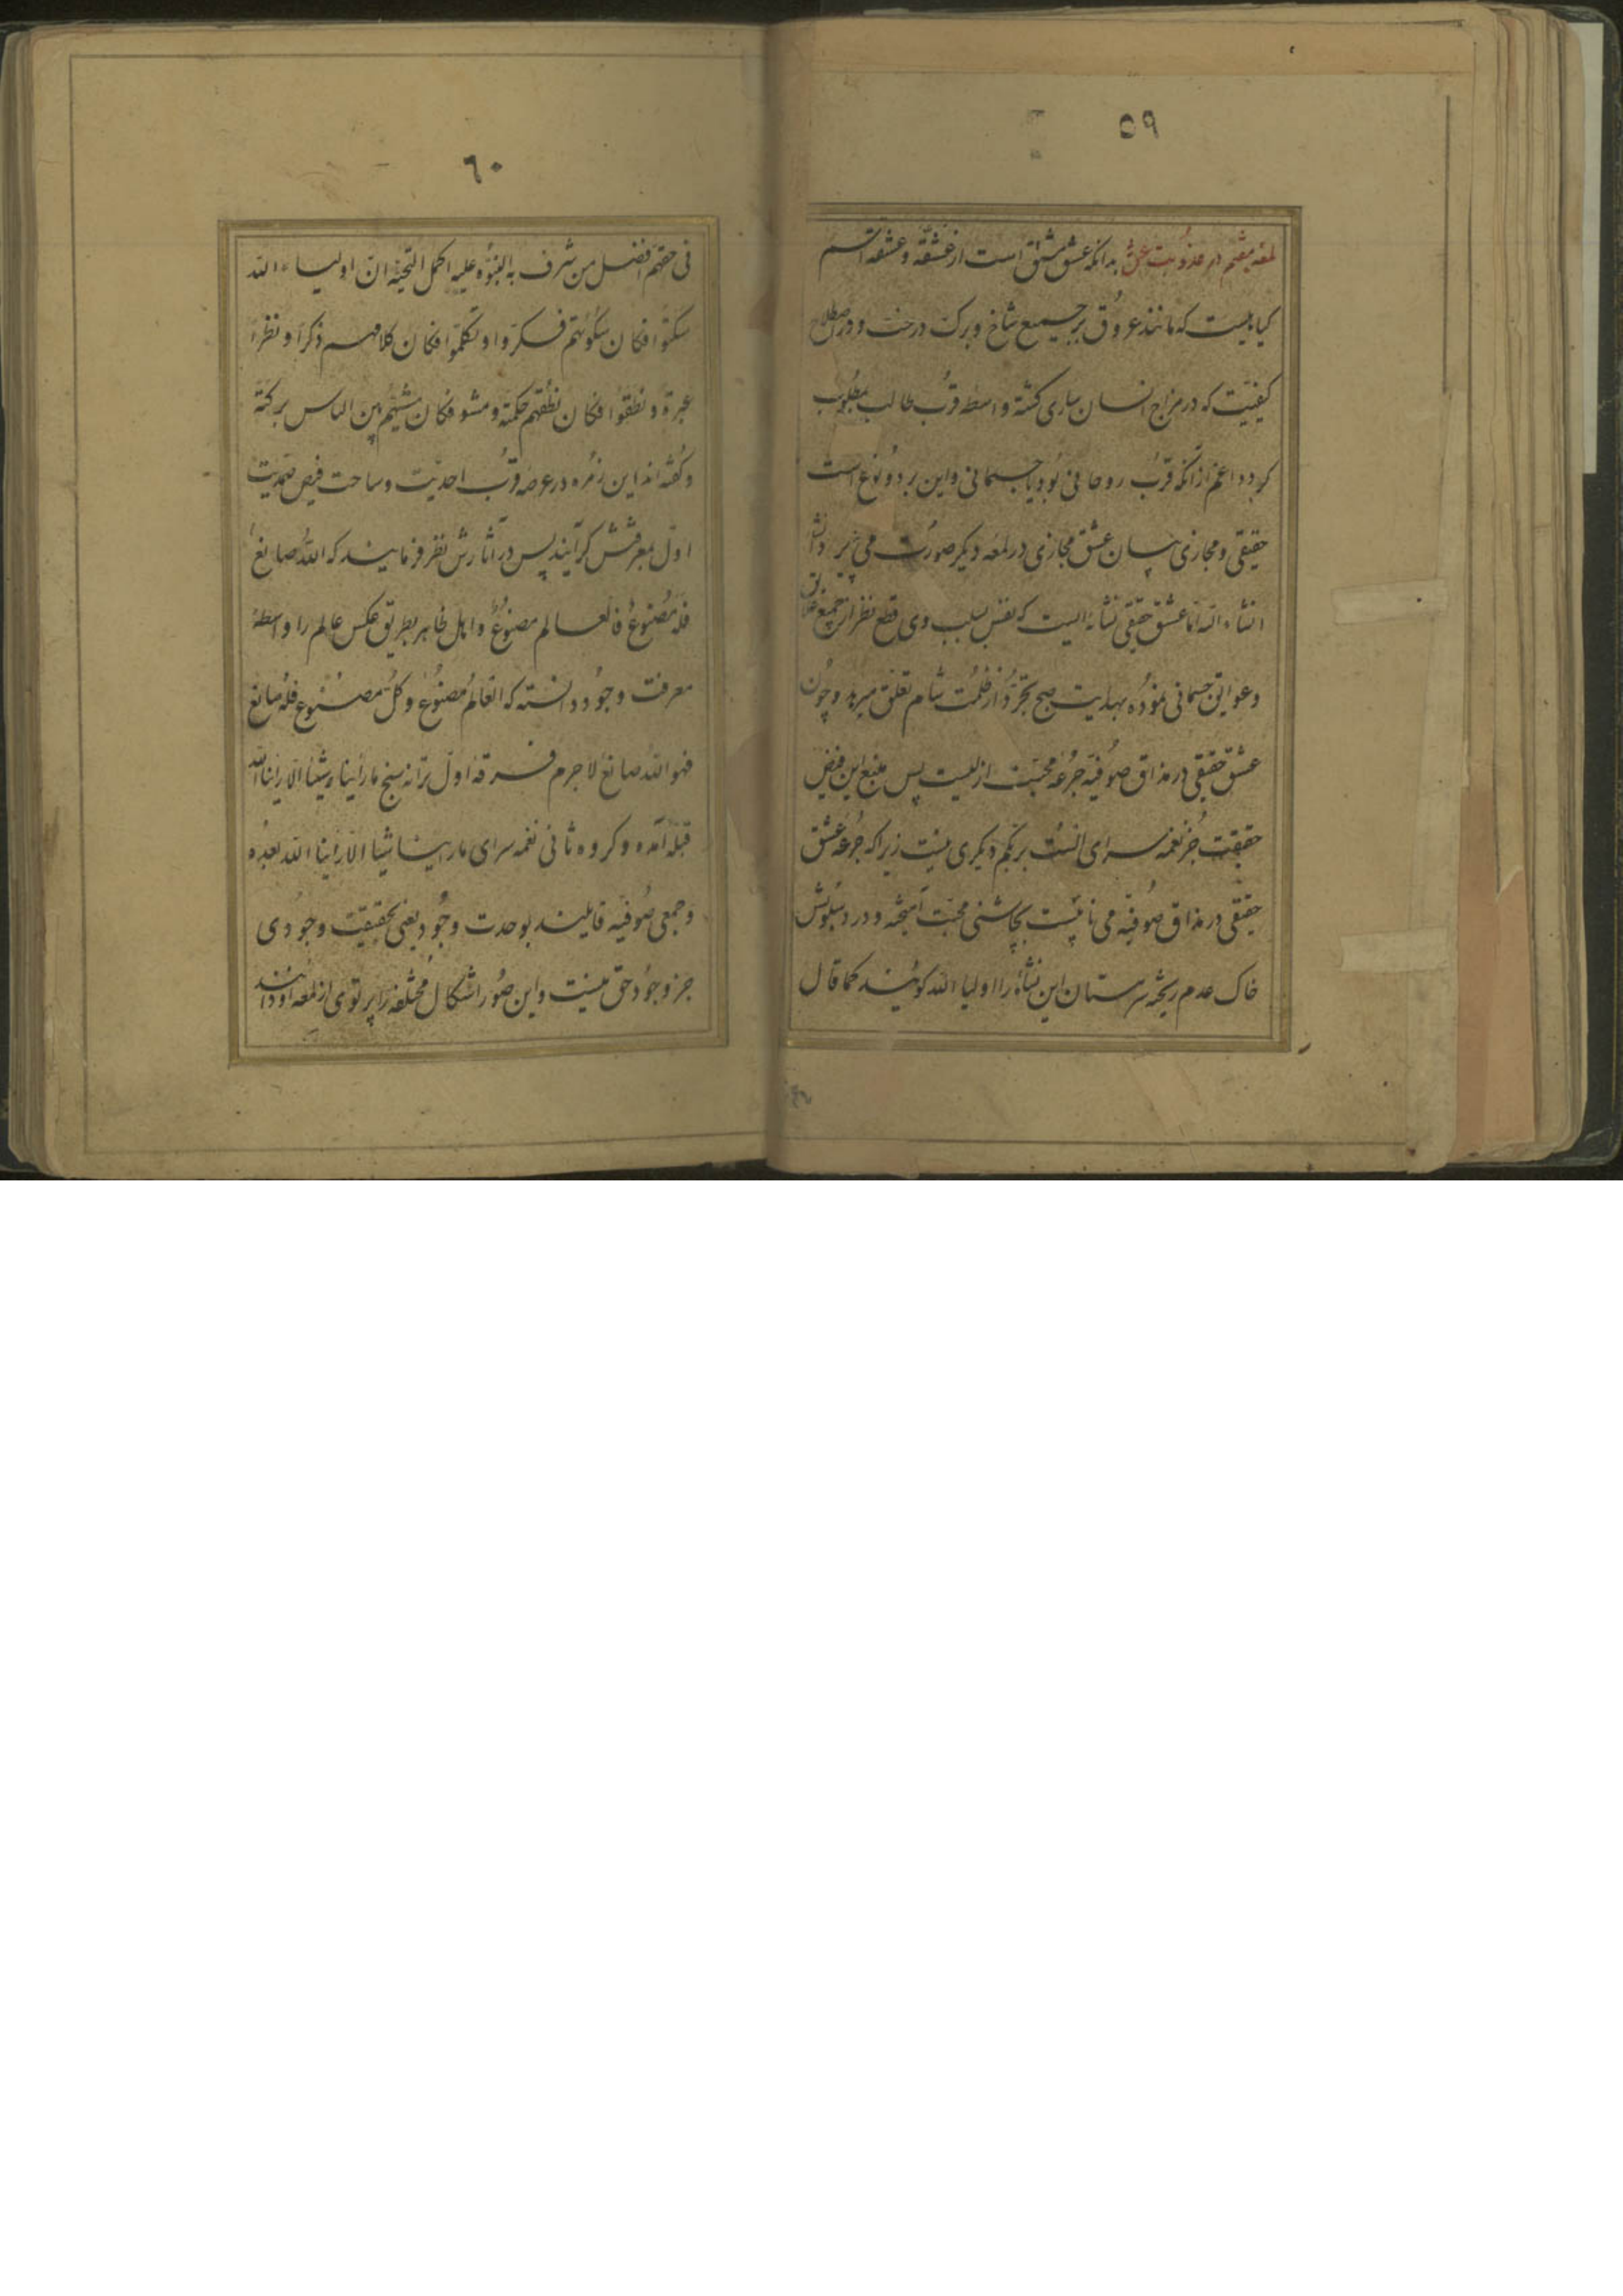 ٥٩
لمعه هشتم در عذوبت عشق بدانکه عشق مشتق است از عشقه و عشقه اسم
کیاهیست که مانند عروق بر جمیع شاخ و برک درخت و در اصطلاح
کیفیت که در مزاج انسان ساری کشته واسطه قرب طالب بمطلوب
کردد اعم از انکه قرب روحانی بود یا جسمانی و این بر دو نوع است
حقیقی و مجازی بیان عشق مجازی در لمعه دیکر صورت می پذیرد
انشاء الله اما عشق حقیقی نشاءه الیست که نفس بسبب وی قطع نظر از جمیع علایق
و عوایق جسمانی نموده بهدایت صبح تجرد از ظلمت شام تعلق میرهد و چون
عشق حقیقی در مذاق صوفیه جرعه محبت ازلیست پس منبع این فیض
حقیقت جز نغمه سرای الست بربکم دیکری نیست زیرا که جرعه عشق
حقیقی در مذاق صوفیه می نابیست بچاشنی محبت آمیخته و در دسبوش
خاک عدم ریخته سرمستان این نشاءه را اولیا الله کویند کما قال
٦٠
فی حقهم افضل من شرف به النبوه علیه اکمل التحیه ان اولیاء الله
سکتوا فکان سکوتهم فکرا و تکلموا فکان کلامهم ذکرا و نظرا
عبرة و نطقوا فکان نطقهم حکمة و مشو فکان مشیهم بین الناس برکة
و کفته اند این زمره در عرصه قرب احدیت و ساحت فیض صمدیت
اول بمعرفتش کرآیند پس در آثارش نظر فرمایند که الله صانع
فله مصنوع فالعالم مصنوع و اهل ظاهر بطریق عکس عالم را واسطه
معرفت وجود دانسته که العالم مصنوع و کل مصنوع فله صانع
فهو الله صانع لاجرم فرقه اول ترانه سنج ما رأینا شیئا الا رأینا الله
قبله آمده و کروه ثانی نغمه سرای ما رأینا شیئا الا رأینا الله بعده
و جمعی صوفیه قایلیند بوحدت وجود یعنی بحقیقت وجودی
جز وجود حق نیست و این صور اشکال مختلفه را پرتوی از لمعه او دانند